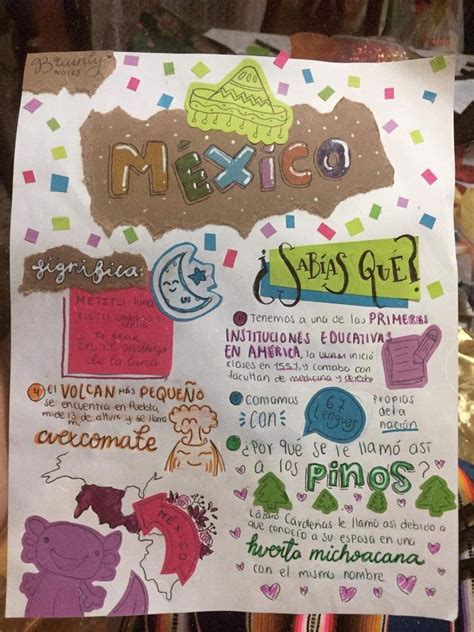 Brainly
NOTES
MÉXICO
significa:
METZTLI luna
XICTLI ombligo o
centro
Es decir
En el ombligo
de la luna
¿SABÍAS QUÉ?
Tenemos a una de las PRIMERAS
INSTITUCIONES EDUCATIVAS
EN AMÉRICA, la UNAM inició
clases en 1553 y contaba con
facultan de medicina y derecho
4 El VOLCAN MÁS PEQUEÑO
se encuentra en Puebla,
mide 13 de altura y se llama
m.
cuexcomate
Contamos
CON
67
Lenguas
Propias
de la
nación
¿Por qué se le llamó así
a los
PINOS?
Lázaro Cárdenas le llamó así debido a
que conocío a su esposa en una
huerta michoacana
con el mismo nombre
MÉXICO